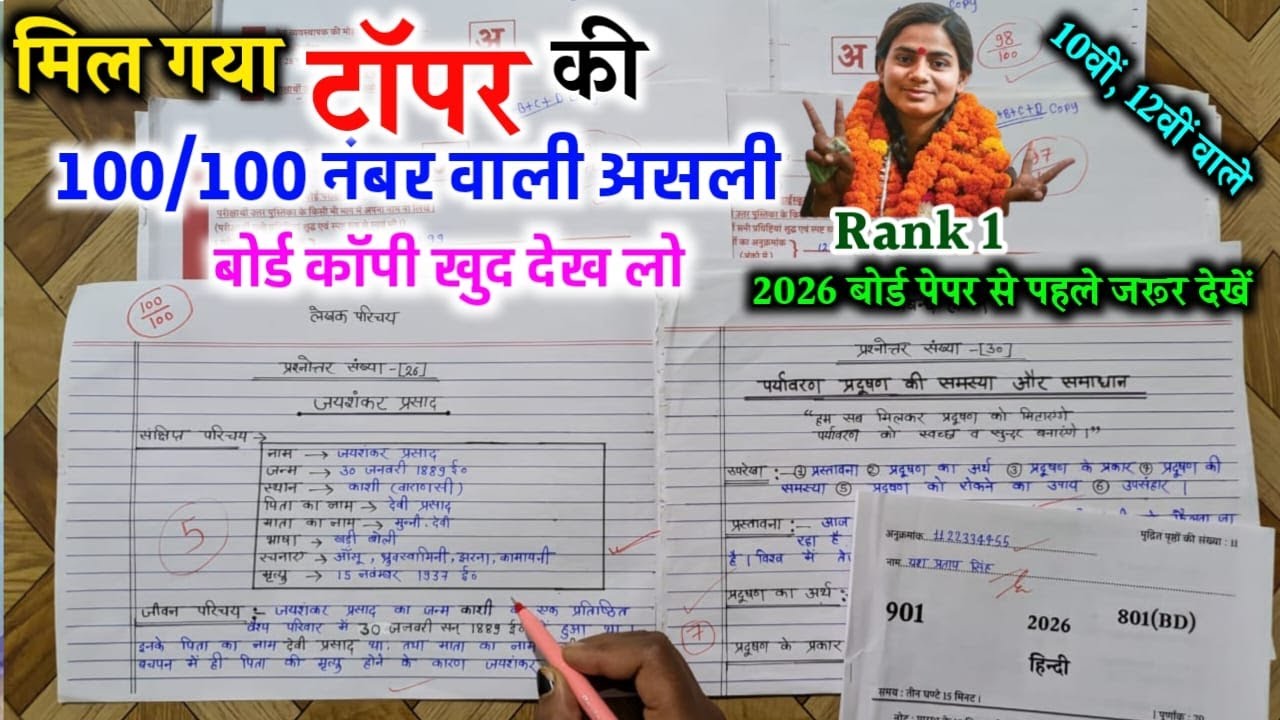 मिल गया टॉपर की
100/100 नंबर वाली असली
बोर्ड कॉपी खुद देख लो
10वीं, 12वीं वाले
Rank 1
2026 बोर्ड पेपर से पहले जरूर देखें
अ
अ
Copy
98/100
B+C+D Copy
97
परीक्षार्थी उत्तर पुस्तिका के किसी भी भाग में अपना नाम न लिखें।
100/100
लेखक परिचय
प्रश्नोत्तर संख्या -[26]
जयशंकर प्रसाद
संक्षिप्त परिचय →
नाम → जयशंकर प्रसाद
जन्म → 30 जनवरी 1889 ई०
स्थान → काशी (वाराणसी)
पिता का नाम → देवी प्रसाद
माता का नाम → मुन्नी देवी
भाषा → खड़ी बोली
रचनाए → आँसू, ध्रुवस्वामिनी, झरना, कामायनी
मृत्यु → 15 नवम्बर 1937 ई०
5
जीवन परिचय :- जयशंकर प्रसाद का जन्म काशी के एक प्रतिष्ठित
वैश्य परिवार में 30 जनवरी सन् 1889 ई० में हुआ था।
इनके पिता का नाम देवी प्रसाद था, तथा माता का नाम
बचपन में ही पिता की मृत्यु होने के कारण जयशंकर
प्रश्नोत्तर संख्या -[30]
पर्यावरण प्रदूषण की समस्या और समाधान
"हम सब मिलकर प्रदूषण को मिटाएंगे
पर्यावरण को स्वच्छ व सुन्दर बनाएंगे।"
उपरेखा :- ① प्रस्तावना ② प्रदूषण का अर्थ ③ प्रदूषण के प्रकार ④ प्रदूषण की
समस्या ⑤ प्रदूषण को रोकने का उपाय ⑥ उपसंहार।
प्रस्तावना :- आज
रहा है
है। विश्व में
प्रदूषण का अर्थ :
7
प्रदूषण के प्रकार
अनुक्रमांक 1122334455
मुद्रित पृष्ठों की संख्या : 11
नाम यश प्रताप सिंह
901
2026
801(BD)
हिन्दी
समय : तीन घण्टे 15 मिनट।